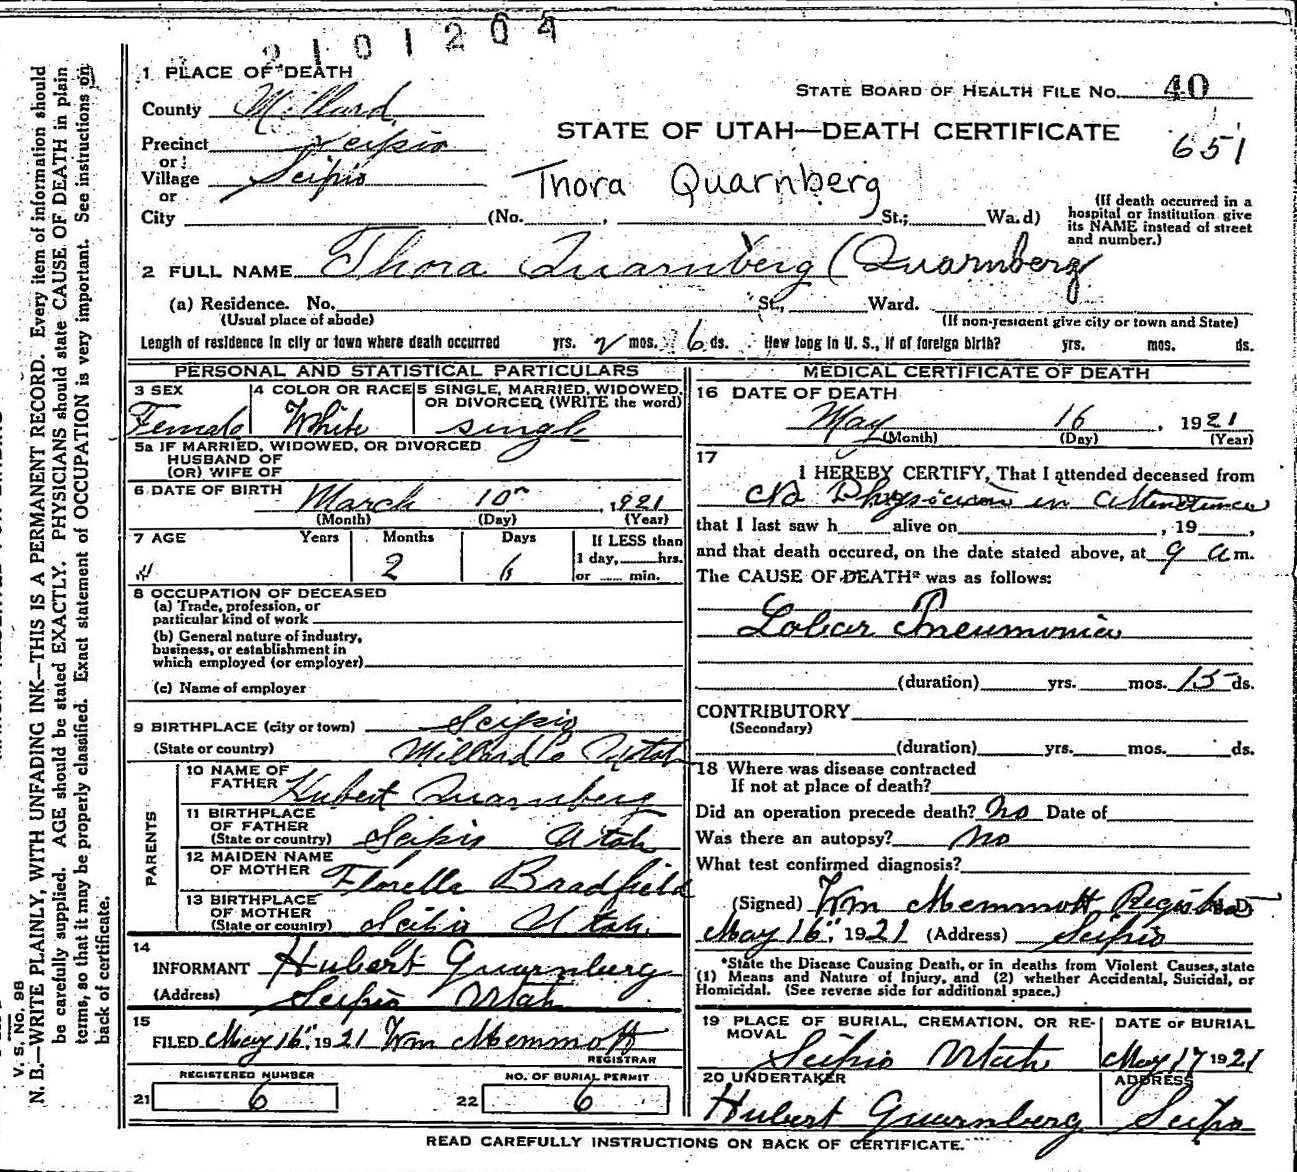 2101204
1 PLACE OF DEATH
STATE BOARD OF HEALTH FILE No. 40
County Millard
STATE OF UTAH—DEATH CERTIFICATE
651
Precinct Scipio
or
Village Scipio
Thora Quarnberg
or
City (No. , St.; Ward)
(If death occurred in a hospital or institution give its NAME instead of street and number.)
2 FULL NAME Thora Quarnberg (Quarnberg
(a) Residence. No. St., Ward.
(Usual place of abode)
(If non-resident give city or town and State)
Length of residence in city or town where death occurred yrs. 2 mos. 6 ds. How long in U. S., if of foreign birth? yrs. mos. ds.
PERSONAL AND STATISTICAL PARTICULARS
3 SEX
Female
4 COLOR OR RACE
White
5 SINGLE, MARRIED, WIDOWED, OR DIVORCED (WRITE the word)
single
5a IF MARRIED, WIDOWED, OR DIVORCED
HUSBAND OF
(OR) WIFE OF
6 DATE OF BIRTH March 10 , 1921
(Month) (Day) (Year)
7 AGE Years Months Days If LESS than
1 day, hrs.
or min.
2 6
8 OCCUPATION OF DECEASED
(a) Trade, profession, or
particular kind of work
(b) General nature of industry,
business, or establishment in
which employed (or employer)
(c) Name of employer
9 BIRTHPLACE (city or town) Scipio
(State or country) Millard Co Utah
PARENTS
10 NAME OF FATHER Hubert Quarnberg
11 BIRTHPLACE OF FATHER
(State or country) Scipio Utah
12 MAIDEN NAME OF MOTHER Florella Bradfield
13 BIRTHPLACE OF MOTHER
(State or country) Scipio Utah
14
INFORMANT Hubert Quarnberg
(Address) Scipio Utah
15
FILED May 16", 1921 Wm Memmott
REGISTRAR
REGISTERED NUMBER
21 6
NO. OF BURIAL PERMIT
22 6
MEDICAL CERTIFICATE OF DEATH
16 DATE OF DEATH
May 16 , 1921
(Month) (Day) (Year)
17
I HEREBY CERTIFY, That I attended deceased from
No Physician in Attendance
that I last saw h alive on , 19 ,
and that death occured, on the date stated above, at 9 a m.
The CAUSE OF DEATH* was as follows:
Lobar Pneumonia
(duration) yrs. mos. 15 ds.
CONTRIBUTORY
(Secondary)
(duration) yrs. mos. ds.
18 Where was disease contracted
If not at place of death?
Did an operation precede death? No Date of
Was there an autopsy? No
What test confirmed diagnosis?
(Signed) Wm Memmott Registrar
May 16", 1921 (Address) Scipio
*State the Disease Causing Death, or in deaths from Violent Causes, state
(1) Means and Nature of Injury, and (2) whether Accidental, Suicidal, or
Homicidal. (See reverse side for additional space.)
19 PLACE OF BURIAL, CREMATION, OR REMOVAL
Scipio Utah
DATE OF BURIAL
May 17 1921
20 UNDERTAKER
Hubert Quarnberg
ADDRESS
Scipio
READ CAREFULLY INSTRUCTIONS ON BACK OF CERTIFICATE.
V. S. No. 98
N. B.—WRITE PLAINLY, WITH UNFADING INK—THIS IS A PERMANENT RECORD. Every item of information should
be carefully supplied. AGE should be stated EXACTLY. PHYSICIANS should state CAUSE OF DEATH in plain
terms, so that it may be properly classified. Exact statement of OCCUPATION is very important. See instructions on
back of certificate.